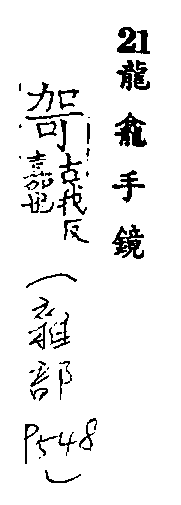 21龍龕手鏡
哿
古我反
嘉也
（雜部
P548）